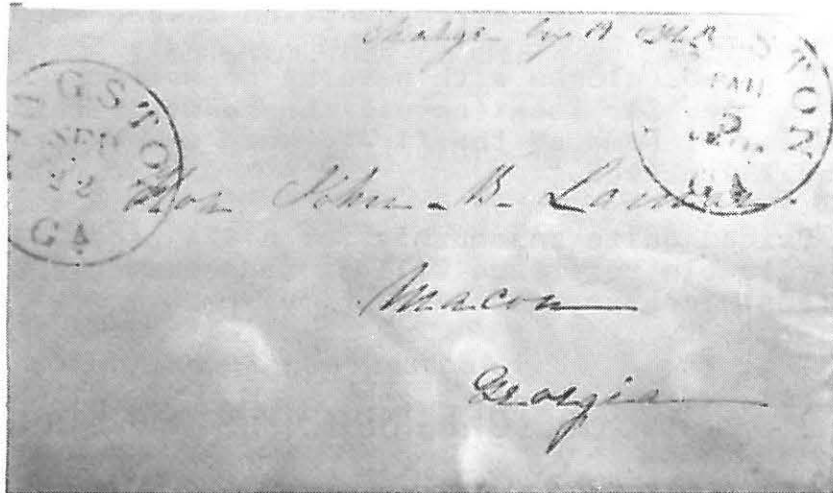 Charge
GSTO
SEP
12
GA
STON
PAID
5
GA
Hon John B. Lamar
Macon
Georgia